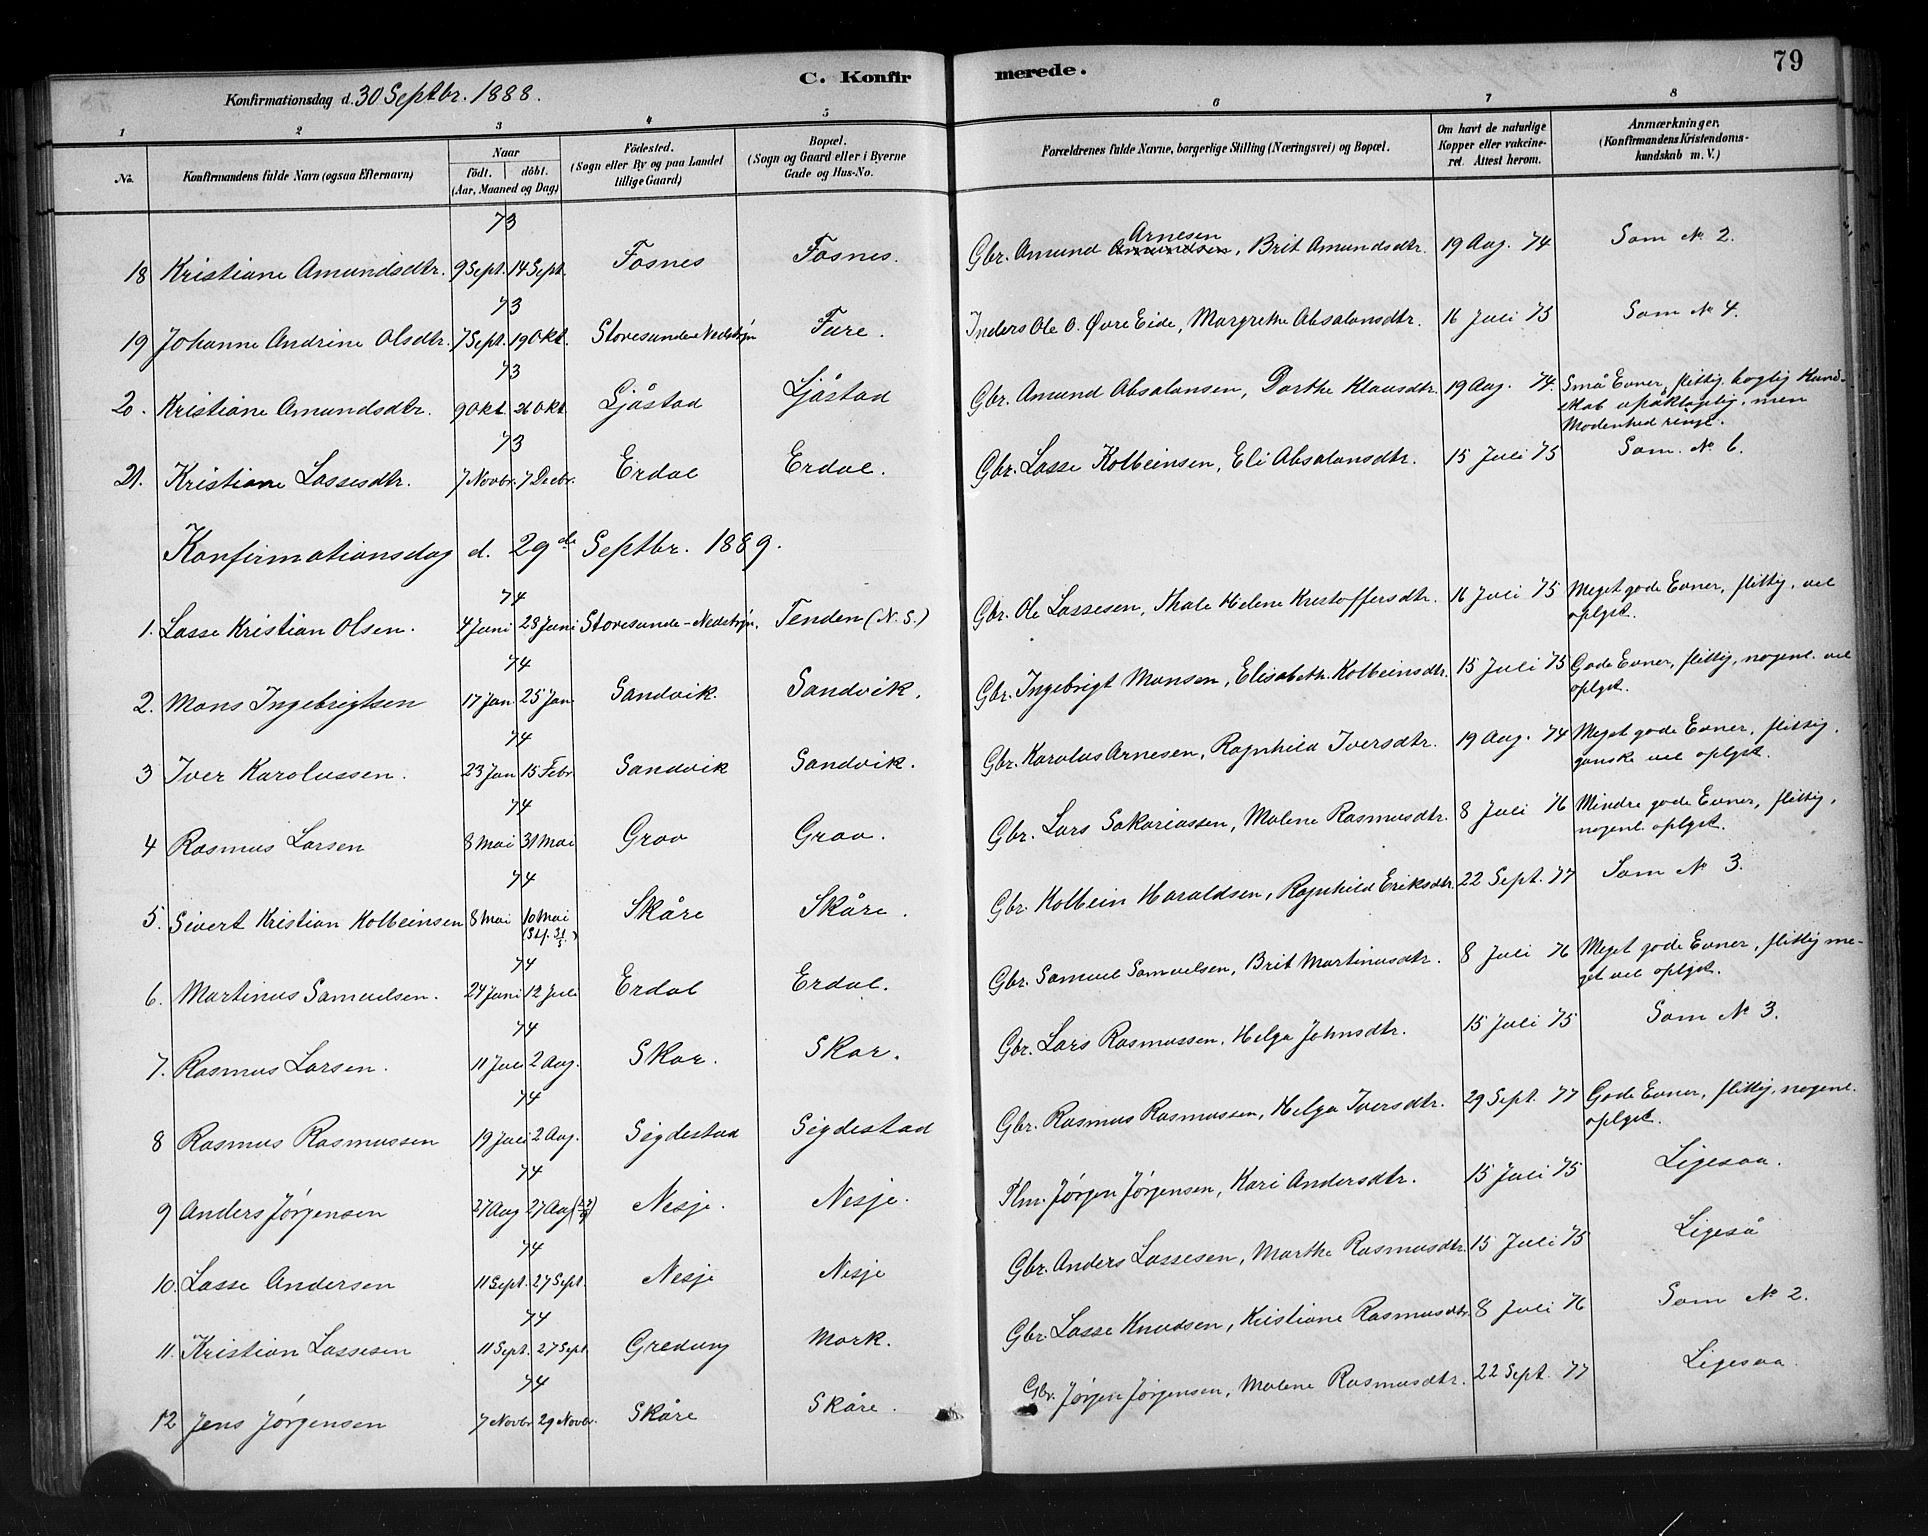 79
C. Konfir merede.
Konfirmationsdag d. 30 Septbr. 1888.
1 2 3 4 5 6 7 8
No. Konfirmandens fulde Navn (ogsaa Efternavn) Naar födt. döbt. (Aar, Maaned og Dag) Födested. (Sogn eller By og paa Landet tillige Gaard) Bopæl. (Sogn og Gaard eller i Byerne Gade og Hus-No. Forældrenes fulde Navne, borgerlige Stilling (Næringsvei) og Bopæl. Om havt de naturlige Kopper eller vakcineret. Attest herom. Anmærkninger. (Konfirmandens Kristendomskundskab m. V.)
73 Arnesen
18 Kristiane Amundsdtr. 9 Sept. 14 Sept. Fosnes Fosnes. Gbr. Amund Amundsen, Brit Amundsdtr. 19 Aug. 74 Som No 2.
73
19 Johanne Andrine Olsdtr. 7 Sept. 19 Okt. Storesunde Nedstryn Fure. Inders Ole O. Øvre Eide, Margrethe Absalonsdtr. 16 Juli 75 Som No 4.
73
20. Kristiane Amundsdtr. 9 Okt. 26 Okt. Ljåstad Ljåstad Gbr. Amund Absalonsen, Dorthe Klausdtr. 19 Aug. 74. Små Evner, flittig, boglig Kund-
skab upåklagelig, men
Modenhed ringe.
73
21. Kristiane Lassesdtr. 7 Novbr. 7 Decbr. Erdal Erdal. Gbr. Lasse Kolbeinsen, Eli Absalonsdtr. 15 Juli 75 Som No 6.
Konfirmationsdag d. 29de Septbr. 1889.
74
1. Lasse Kristian Olsen. 4 Juni 28 Juni Storesunde - Nedstryn, Tenden (N.S.) Gbr. Ole Lassesen, Thale Helene Kristoffersdtr. 16 Juli 75 Meget gode Evner, flittig, vel
oplyst.
74
2. Mons Ingebrigtsen 17 Jan. 25 Jan. Sandvik Sandvik. Gbr. Ingebrigt Monsen, Elisabeth Kolbeinsdtr. 15 Juli 75 Gode Evner, flittig, nogenl. vel
oplyst.
74
3 Iver Karolussen. 23 Jan 15 Febr Sandvik Sandvik. Gbr. Karolus Arnesen, Ragnhild Iversdtr. 19 Aug. 74 Meget gode Evner, flittig,
ganske vel oplyst.
74
4 Rasmus Larsen 8 Mai 31 Mai Grov Grov. Gbr. Lars Sakariassen, Malene Rasmusdtr. 8 Juli 76 Mindre gode Evner, flittig,
nogenl. oplyst.
74
5. Sivert Kristian Kolbeinsen 8 Mai 10 Mai (Stf. 31/5) Skåre Skåre. Gbr. Kolbein Haraldsen, Ragnhild Eriksdtr. 22 Sept. 77 Som No 3.
74
6. Martinus Samuelsen. 24 Juni 12 Juli Erdal Erdal. Gbr. Samuel Samuelsen, Brit Martinusdtr. 8 Juli 76 Meget gode Evner, flittig me-
get vel oplyst.
74
7. Rasmus Larsen. 11 Juli 2 Aug. Skar. Skar. Gbr. Lars Rasmussen, Helga Johnsdtr. 15 Juli 75 Som No 3.
74
8 Rasmus Rasmussen 19 Juli 2 Aug. Sigdestad Sigdestad Gbr. Rasmus Rasmussen, Helga Iversdtr. 29 Sept. 77 Gode Evner, flittig, nogenl.
oplyst.
74
9 Anders Jørgensen 27 Aug 27 Aug Nesje. Nesje. Plm. Jørgen Jørgensen, Kari Andersdtr. 15 Juli 75 Ligesaa.
74
10. Lasse Andersen 11 Sept. 27 Sept. Nesje Nesje Gbr. Anders Lassesen, Marthe Rasmusdtr. 15 Juli 75 Ligeså
74
11. Kristian Lassesen 11 Sept. 27 Sept Gredung Mork. Gbr. Lasse Knudsen, Kristiane Rasmusdtr. 8 Juli 76 Som No 2.
74
12 Jens Jørgensen 7 Novbr 29 Novbr. Skåre Skåre. Gbr. Jørgen Jørgensen, Malene Rasmusdtr. 22 Sept. 77 Ligesaa.